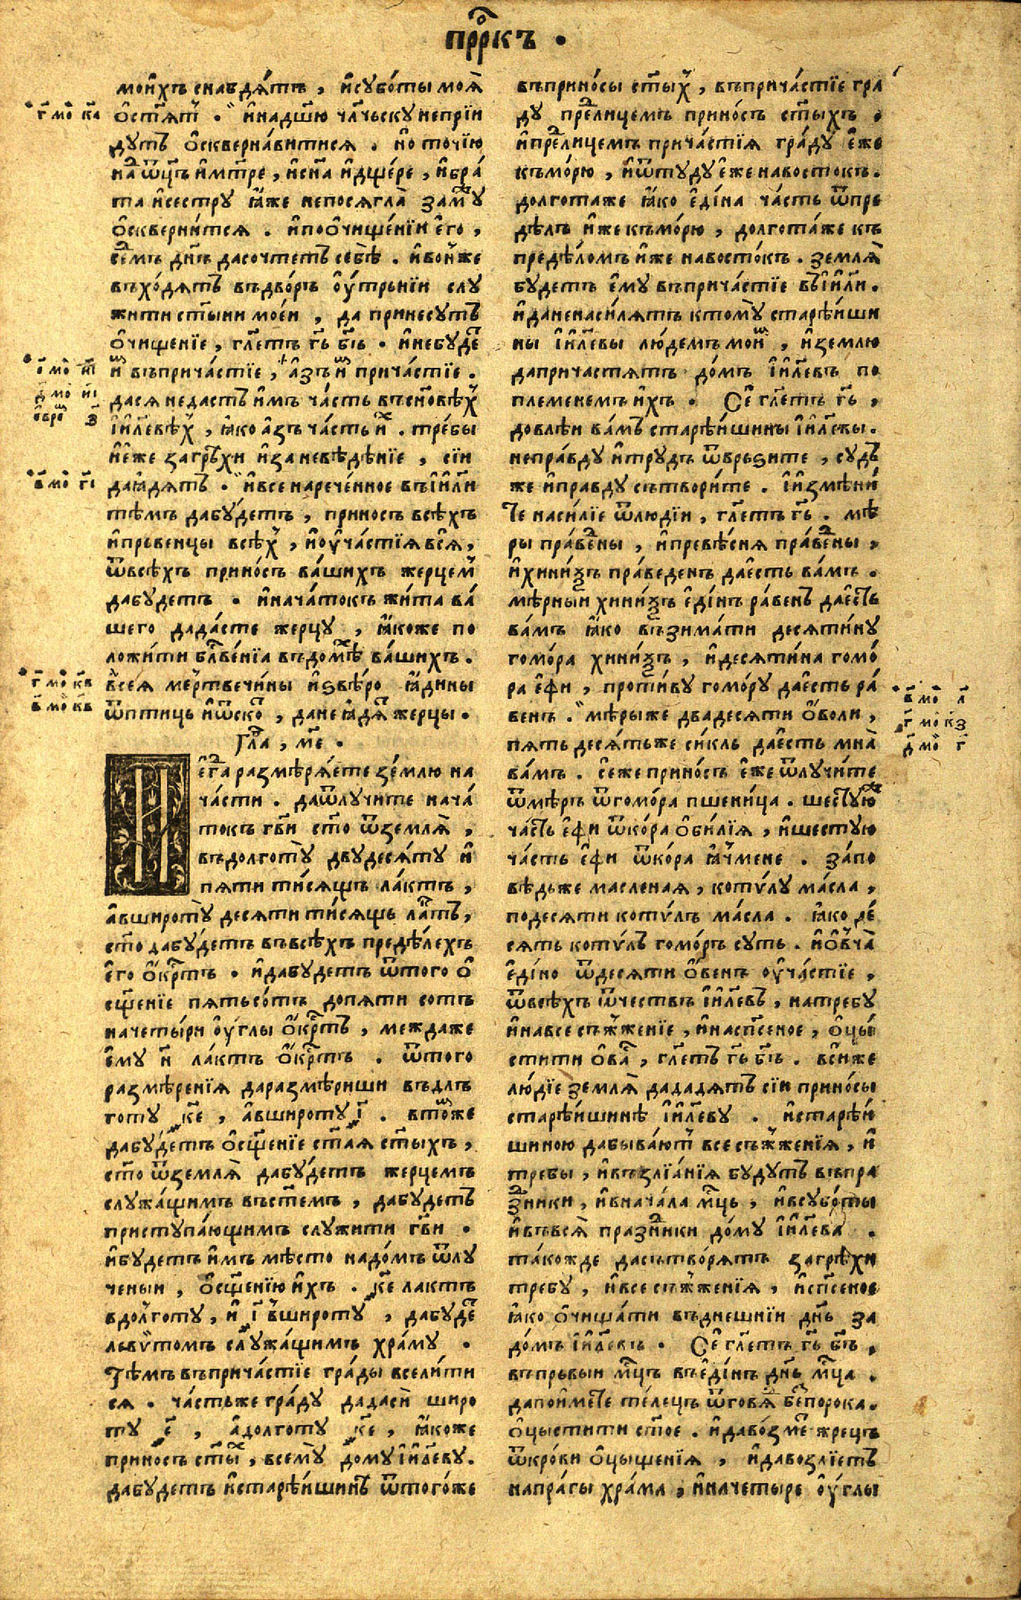 прⷪ҇ркъ ·
мои́хъ снабдѧ́тъ , и҆субо́ты моѧ̀
г҃ мⷪ҇ к҃а
ѡ҆стѧ́тⸯ . и҆надш҃ю чл҃чьску неприи
дутъ ѡ҆скверна́витисѧ . но то́чїю
на ѿц҃ъ и҆мт҃ре , и҆сн҃а и҆дще́ре , и҆бра́
та и҆сестру̀ ꙗ҆́же непосѧгла̀ за́мⷤу
ѡ҆сквернѝтсѧ . и҆поо҆чище́нїи є҆го̀ ,
се́мъ дн҃ъ дасочте́тъ себѣ̀ . и҆во́ньже
въхо́дѧтъ въдво́ръ ѹ҆́трьнїи слу
жи́ти ст҃ы́ни мое́и , да прине́сутъ
ѡ҆чище́нїе , гл҃етъ гь҃ бг҃ъ . и҆небу́деⷮ
и҆мⸯ въприча́стїе , а҆́зъ и҆мⸯ прича́стїе .
і҃ мⷪ҇ и҃і
д҃ мⷪ҇ и҃і
дасѧ неда́стъ и҆̀мъ ча́сть въсн҃овѣⷯ
і҆и҃левѣⷯ , ꙗ҆́ко а҆́зъ ча́сть иⷯ . тре́бы
и҆́еже загрѣхѝ и҆заневѣ́дѣнїе , сїѝ
в҃ мⷪ҇ г҃і
даꙗ҆дѧ́тъ . и҆все наре́ченное въі҆и҃ли
тѣ́мъ дабу́детъ , приносъ всѣ́хъ
и҆прьвенцы всѣⷯ , и҆ѹ҆ча́стїѧ всѧ̀ ,
ѿвсѣ́хъ прино́съ ва́шихъ жерце́мⸯ
дабу́детъ . и҆нача́токъ жи́та ва́
шего дада́сте жерцу̀ , ꙗ҆́коже по
ложи́ти бл҃ве́нїѧ въдомⷯѣ ва́шихъ .
г҃ мⷪ҇ к҃в
в҃ мⷪ҇ к҃в
всеѧ̀ ме́ртвечи́ны и҆ѕвѣ́ро ꙗ҆́дины
ѿпти́цъ и҆ѿско́ⷮ , дане ꙗ҆дѧ́ⷮ жерцы̀ .
Гл҃а , м҃е .
Не́гда размѣрѧ́ете зе́млю на
ча́сти . даѿлу́чите нача́
токъ гв҃и ст҃о ѿземлѧ̀ ,
въдолготу̀ двудесѧ́ту и҆
пѧти ти́сѧщъ ла́ктъ ,
а҆вширо́ту десѧти ти́сѧщъ лаⷦтъ ,
ст҃о дабу́детъ въвсѣ́хъ предѣ́лехъ
є҆го̀ ѡ҆́крⷭтъ . и҆дабу́детъ ѿтого̀ ѡ҆
сщ҃е́нїе пѧ́тьсо́тъ допѧ́ти сотъ
начеты́ри ѹ҆́глы ѡ҆́крⷭтъ , междаже
є҆му̀ н҃ ла́ктъ ѡ҆́крⷭтъ . ѿтого
размѣре́нїѧ даразмѣ́риши въдлъ
готу ҂к҃е , а҆вширо́ту ҂і҃ . втоⷨже
дабу́детъ ѡ҆сщ҃е́нїе ст҃а́ѧ ст҃ы́хъ ,
ст҃о ѿземлѧ̀ дабу́детъ жерцемъ
служа́щимъ въст҃емъ , дабу́детъ
приступа́ющимъ служи́ти гв҃и .
и҆бу́детъ и҆́мъ мѣ́сто надо́мъ ѿлу́
чены́и , ѡ҆сщ҃е́нїю и҆́хъ . ҂к҃е ла́ктъ
вдолготу , и҆ ҂і҃ вширо́ту , дабу́деⷮ
льву́томъ слу́жащимъ хра́му .
Тѣ́мъ въприча́стїе гра́ды всели́ти
сѧ . ча́стьже гра́ду дадасѝ широ
ту ҂є҃ , а҆долготу ҂к҃е , ꙗ҆́коже
прино́съ ст҃ыⷯ , всему̀ дому̀ і҆и҃леву .
дабу́детъ и҆старѣ́ишинѣ ѿтого́же
въприно́сы ст҃ыⷯ , въприча́стїе гра
ду преⷣлице́мъ прино́съ ст҃ы́хъ .
и҆преⷣлице́мъ прича́стїѧ гра́ду є҆́же
къмо́рю , и҆ѿту́ду є҆́же навосто́къ .
долгота́же ꙗ҆́ко є҆ди́на ча́сть ѿпре
дѣ́лъ и҆́же къмо́рю , долгота́же къ
предѣ́ломъ и҆́же навосто́къ . землѧ̀
бу́детъ є҆му̀ въприча́стїе въі҆и҃ли .
и҆данена́силѧтъ ктому̀ старѣ́иши
ны і҆и҃левы лю́демъ моиⷨ , и҆зе́млю
дапричастѧ́тъ до́мъ і҆и҃левъ по
племене́мъ и҆́хъ . Се́ гл҃етъ гь҃ ,
довлѣ́и ва́мъ старѣ́ишины і҆и҃левы .
непра́вду и҆тру́дъ ѿврьѕите , су́дъ
же и҆пра́вду сътвори́те . і҆и҆змѣни́
те наси́лїе ѿлюді́и , гл҃етъ гь҃ . мѣ́
ры пра́веⷣны , и҆превѣ́сиѧ пра́веⷣны ,
и҆хини́ѯъ пра́веденъ дае́сть ва́мъ .
мѣ́рныи хини́ѯъ є҆ди́нъ ра́венъ дае́сть
ва́мъ ꙗ҆́ко възима́ти десѧти́ну
гомо́ра хини́ѯъ , и҆десѧти́на гомо́
в҃ мⷪ҇ л҃
ра є҆фѝ , проти́ву гомо́ру дае́сть ра́
г҃ мⷪ҇ к҃з
венъ . мѣ́рыже двадесѧти ѡ҆́воли ,
д҃ мⷪ҇ г҃
пѧ́ть десѧ́тьже си́кль дае́сть мна̀
ва́мъ . се́же прино́съ є҆́же ѿлучи́те
ѿмѣръ ѿгомо́ра пшени́ца . шесту́ю
ча́сть є҆фѝ ѿко́ра ѡ҆би́лїѧ , и҆шесту́ю
ча́сть є҆фѝ ѿко́ра ꙗ҆́чмене . за́по
вѣдьже ма́сленаѧ , коту́лу ма́сла ,
подесѧти коту́лъ ма́сла . ꙗ҆́ко де́
сѧть коту́лъ гомо́ръ су́ть . и҆ѡ҆вча̀
є҆ди́но ѿдесѧти ѡ҆ве́нъ ѹ҆ча́стїе ,
ѿвсѣ́хъ ѿче́ствъ і҆и҃левъ , натре́бу
и҆навсесъжже́нїе , и҆насп҃се́ное , ѡ҆цы́
стити ѡ҆ваⷭ , гл҃етъ гь҃ бг҃ъ . вси́же
лю́дїе землѧ̀ дададѧ́тъ сїѝ прино́сы
старѣ́ишинѣ і҆и҃леву . и҆старѣ́и
шиною дабыва́ютⸯ всесъжже́нїѧ , и҆
тре́бы , и҆възлїѧ́нїѧ бу́дутъ въпра́
зⷣники , и҆внача́ла мⷭ҇цъ , и҆всубо́ты
и҆въвсѧ̀ пра́зⷣники до́му і҆и҃лева .
та́кожде дасътворѧ́тъ загрѣхѝ
тре́бу , и҆всесъжже́нїѧ , и҆сп҃се́ное
ꙗ҆́ко ѡ҆чища́ти въдне́шнїи дн҃ь за
до́мъ і҆и҃левъ . Се́ гл҃етъ гь҃ бг҃ъ ,
въпрьвы́и мⷭ҇цъ въє҆ди́нъ дн҃ь мⷭ҇ца .
дапои́мете теле́цъ ѿговѧⷣ беⷥпоро́ка .
ѡ҆цы́стити ст҃о́е . и҆даво́змеⷮ жре́цъ
ѿкро́ви ѡ҆цыще́нїѧ , и҆давозлїе́тъ
напра́гы хра́ма , и҆начеты́ре ѹ҆́глы